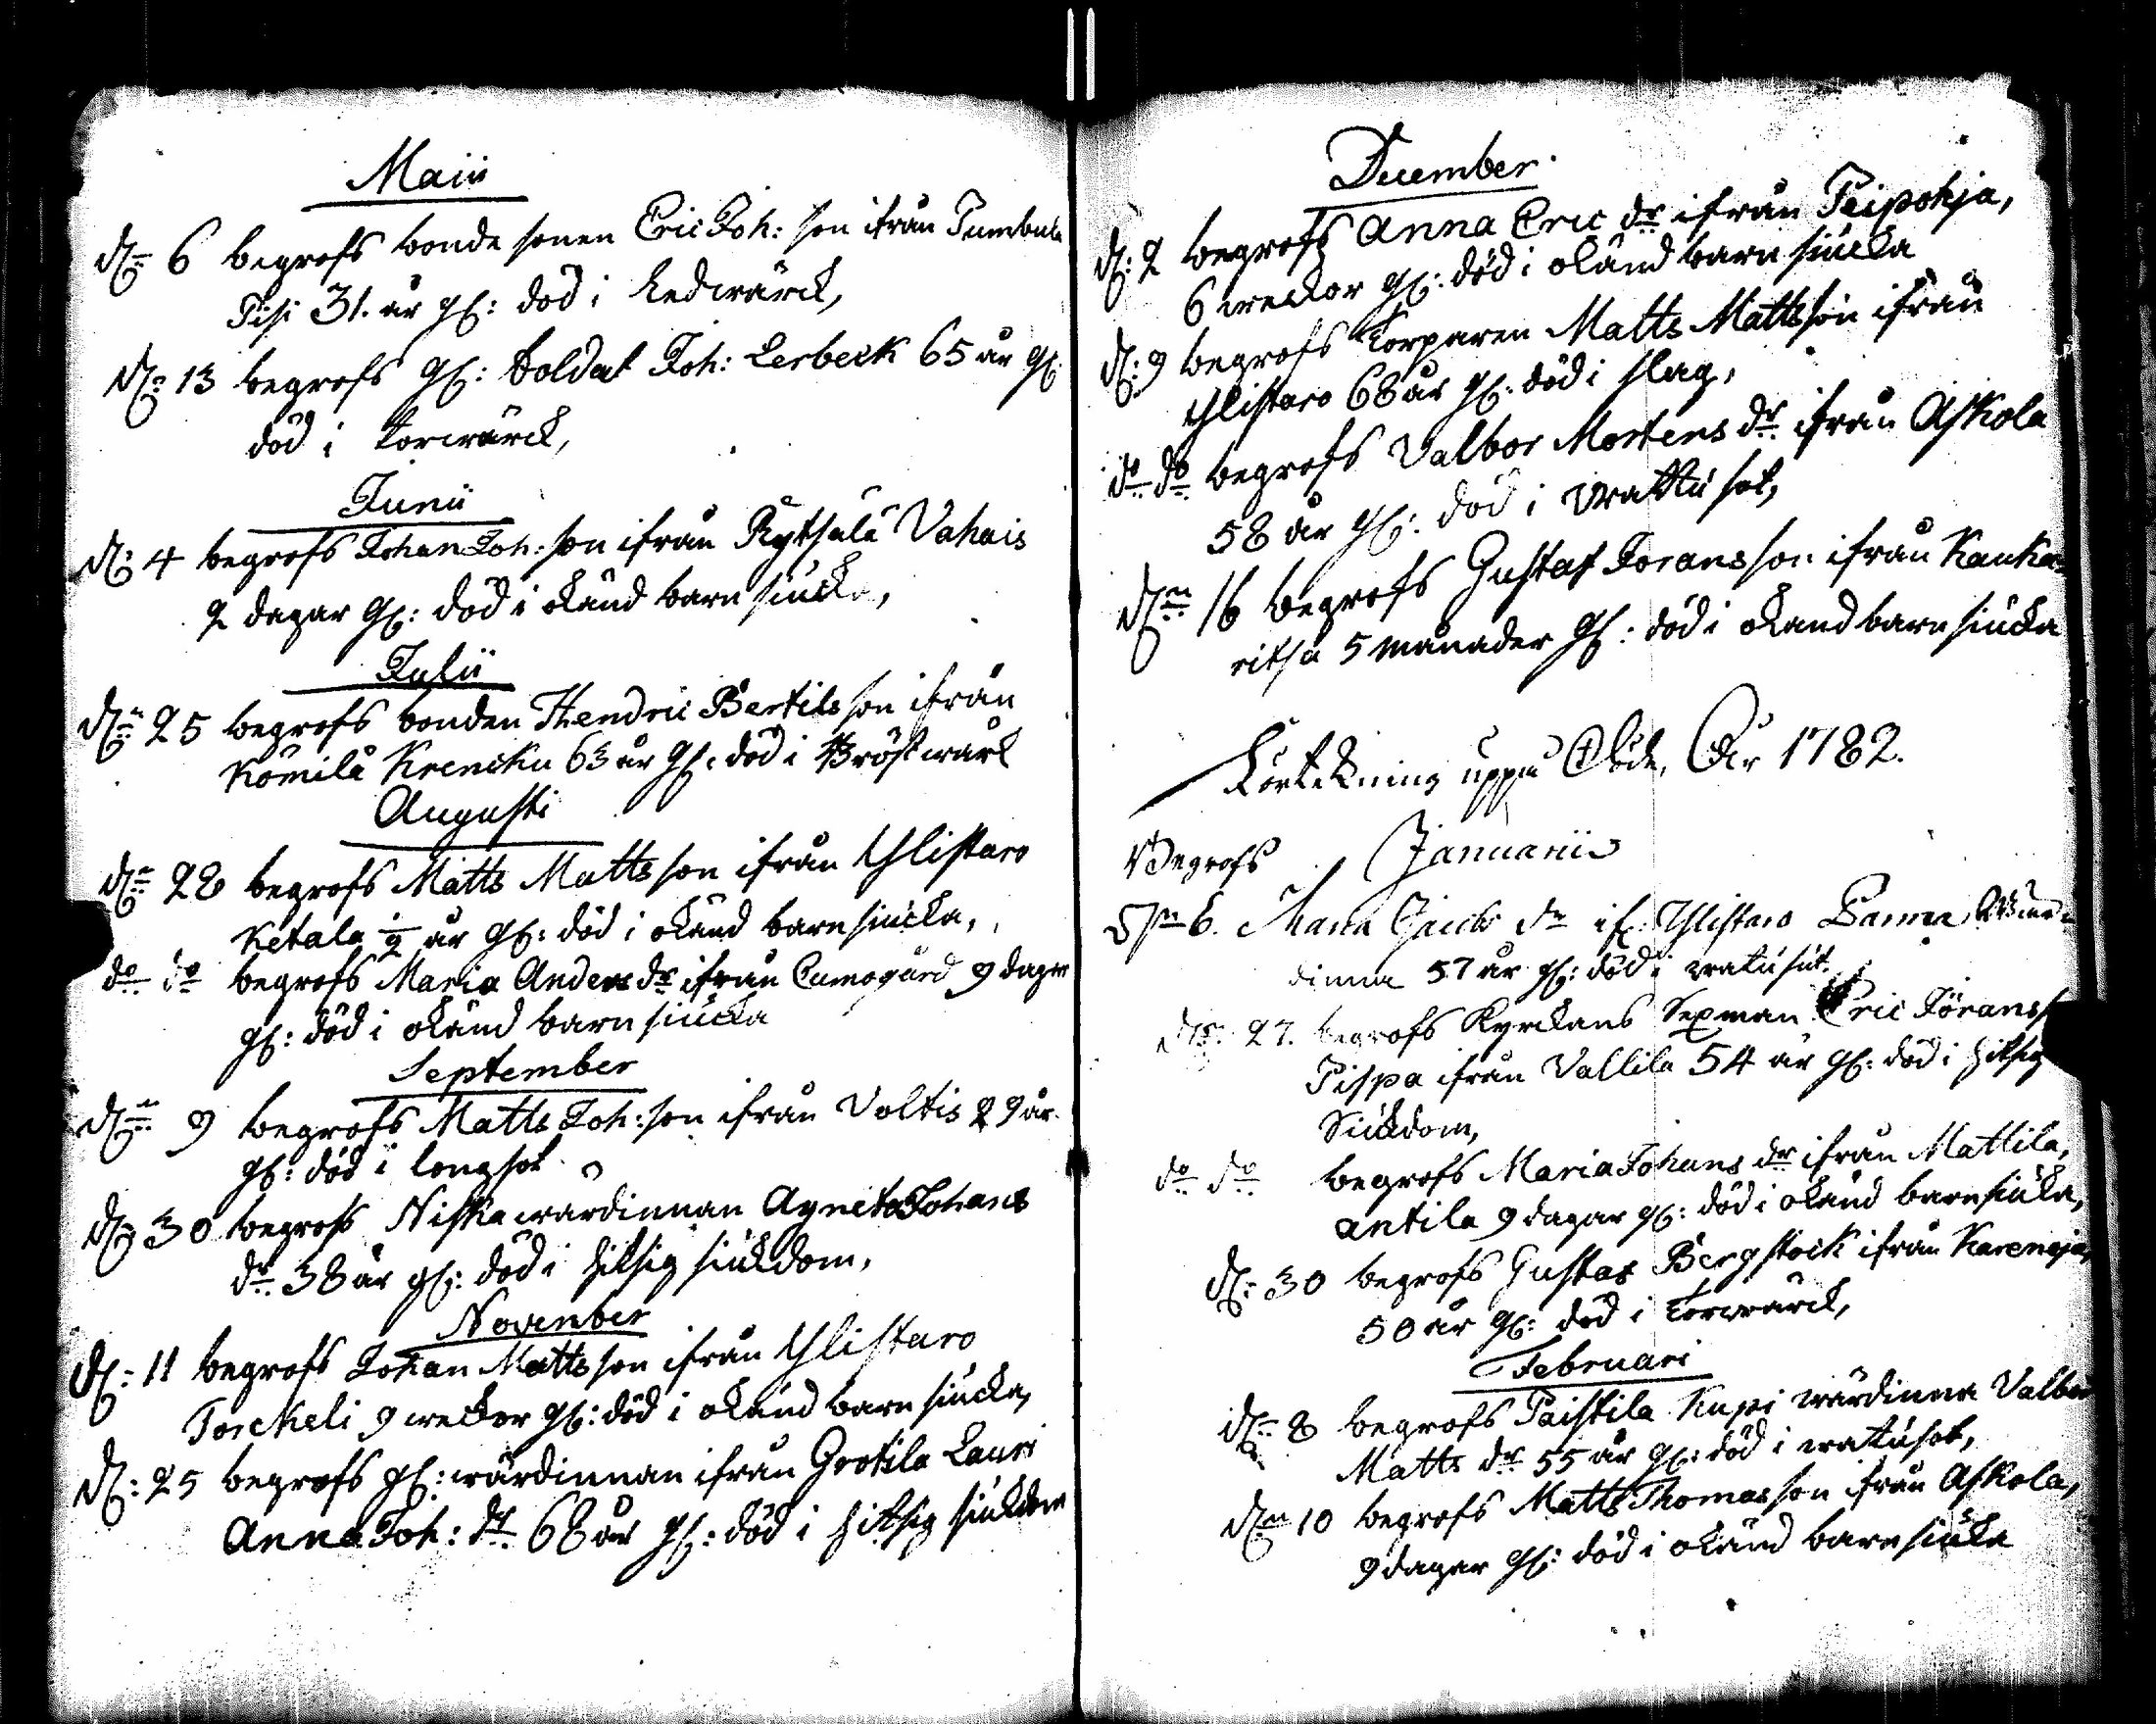 Maii
dn 6 begrofs bonde sonen Eric Joh: son ifrån Tumbula
Sisi 31. år gl: död i Ledwärck,
dn 13 begrofs gl: Soldat Joh: Lerbeck 65 år gl:
död i Torrwärck,
Junii
d: 4 begrofs Johan Joh: son ifrån Rytsälä Vahais
2 dagar gl: död i okänd barn siucka,
Julii
dn 25 begrofs bonden Hendric Bertils son ifrån
Kömilä Krencku 63 år gl: död i Bröstwärk
Augusti
dn 28 begrofs Matts Matts son ifrån Ylistaro
Ketala 1/2 år gl: död i okänd barn siucka,
do do begrofs Maria Anders dr ifrån Cumogård 9 dagar
gl: död i okänd barn siucka
September
dn 9 begrofs Matts Joh: son ifrån Voltis 29 år
gl: död i longsot
d: 30 begrofs Niska wärdinnan Agneta Johans
dr 38 år gl: död i hitsig siukdom,
November
d: 11 begrofs Johan Matts son ifrån Ylistaro
Torckeli 9 weckor gl: död i okänd barn siucka,
d: 25 begrofs gl: wärdinnan ifrån Grotila Lauri
Anna Joh: dr 68 år gl: död i hitsig siukdom
December
d: 2 begrofs Anna Eric dr ifrån Peipohja,
6 weckor gl: död i okänd barn siucka
d: 9 begrofs Torparen Matts Mattsson ifrån
Ylistaro 68 år gl: död i slag,
do do begrofs Valbor Mortens dr ifrån Askola
58 år gl: död i wattu sot,
dn 16 begrofs Gustaf Jorans son ifrån Kanka=
ritsa 5 månader gl: död i okänd barn siucka
Förtekning uppå Döde, Åhr 1782.
Begrofs Januarii
Dn 6. Maria Jacobs dr if: Ylistaro Wär=
dinna 57 år gl: död i watusut.
dn 27. begrofs Kyrckans Sexman Eric Jöranss
Pispa ifrån Vallila 54 år gl: död i hitsig
Siukdom,
do do begrofs Maria Johans dr ifrån Mattila,
Antila 9 dagar gl: död i okänd barn siuka,
d: 30 begrofs Gustaf Bergstock ifrån Kareneja,
50 år gl: död i Torrwärck,
Februari
dn 8 begrofs Paistila Kupi wärdinna Valbor
Matts dr 55 år gl: död i watusot,
dn 10 begrofs Matts Thomas son ifrån Askola,
9 dagar gl: död i okänd barn siuka